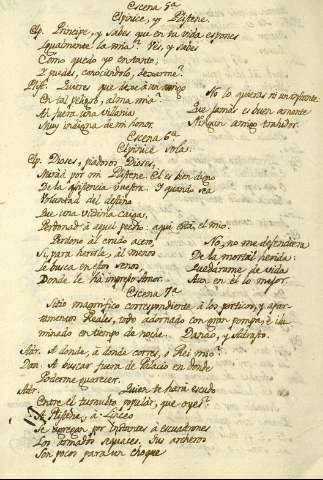 Escena 5ª
Elpinice, y Plistene.
Elp. Principe, y sabes que en tu vida espones
Igualmente la mia? Ves, y sabes
Como quedo yo en tanto,
Y puedes, conociendolo, dexarme?
Plist. Quieres que dexe à un amigo
En tal peligro, alma mia?
Ah fuera una villania
Muy indigna de mi honor.
No lo quieras ni un instante
Que jamàs es buen amante
Ningun amigo traidor.
Escena 6ª
Elpinice sola.
Elp. Dioses, piadosos Dioses,
Mirad por mi Plistene. El es bien digno
De la asistencia vuestra. Y quando sea
Voluntad del destino
Que una victima caiga,
Perdonad à aquel pecho: aqui està el mio.
Perdono al crudo acero,
Si, para herirle, al menos
Le busca en estos senos,
Donde le ha impreso Amor.
No, no me defendiera
De la mortal herida:
Quedarame de vida
Aun en el lo mejor.
Escena 7ª
Sitio magnifico correspondiente à los porticos, y apartamentos Reales, todo adornado con gran pompa, è iluminado en tiempo de noche. Danao, y Adrasto.
Adr. A donde, à donde corres, ò Rei mio?
Dan. A buscar fuera de Palacio en donde
Poderme guarecer.
Adr. Quien te harà escudo
Entre el tumulto popular, que oyes?
A Plistene, à Linceo
Se agregan por instantes à escuadrones
Los armados sequaces. Tus archeros
Son pocos para un choque